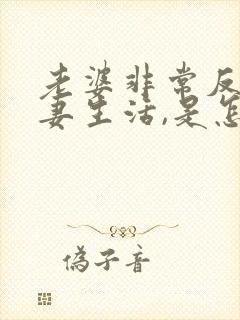 老婆非常反
妻生活,是怎
偽子音